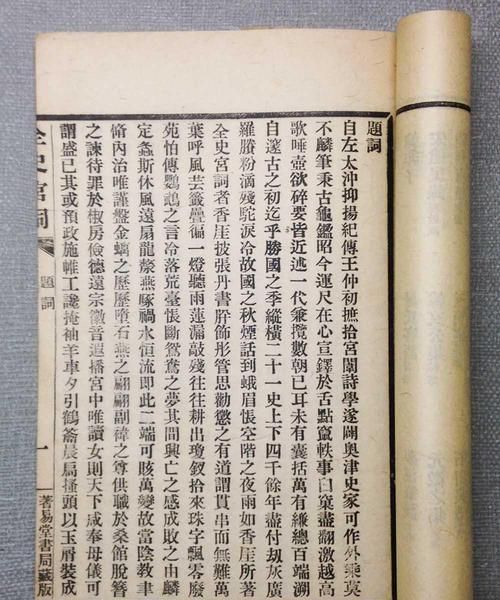 題詞
自左太沖抑揚紀傳王仲初摭拾宮闈詩學遂闢奧津史家可作外乘莫
不麟筆秉古龜鑑昭今運尺在心宣鐸於舌點竄軼事臼窠盡翻激越高
歌唾壺欲碎要皆近述一代兼攬數朝已耳未有囊括萬有總百端溯
自邃古之初迄乎勝國之季縱橫二十一史上下四千餘年盡付劫灰廣
羅賸粉滴殘駝淚冷故國之秋煙話到蛾眉悵空階之夜雨如香崖所著
全史宮詞者香崖披張丹書辭飾彤管思勸懲之有道謂貫串而無難萬
葉呼風芸籤疊徧一燈聽雨蓮漏敲殘往往耕出瓊釵拾來珠字飄零廢
苑怕傳鸚鵡之言冷落荒臺悵斷鴛鴦之夢其間興亡之感成敗之由麟
定螽斯休風遠扇龍漦燕啄禍水恒流即此二端可賅萬變故當陰教聿
脩內治唯謹盤金螭之歷歷墮石燕之翩翩副褘之尊供職於桑館脫簪
之諫待罪於椒房儉德遠宗徽音遐播宮中唯讀女則天下咸奉母儀可
謂盛已其或預政施帷工讒掩袖羊車夕引鶴籥晨扃搔頭以玉屑裝成
全史宮詞
題詞
一
著易堂書局藏版